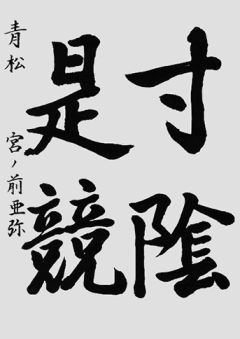 寸陰
是競
青松 宮ノ前亜弥